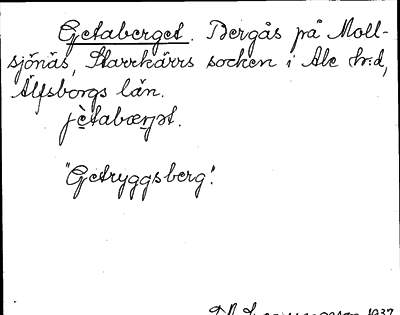 Getaberget. Bergås på Moll-
sjönäs, Starrkärrs socken i Ale hrd,
Älfsborgs län.
jètabærjət.
"Getryggsberg".
1937